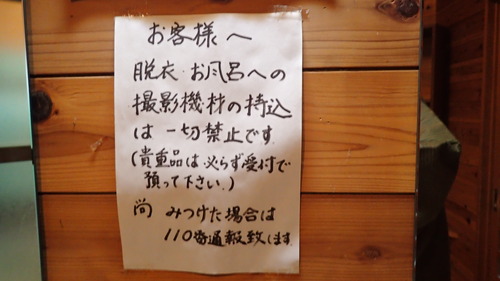 お客様へ
脱衣・お風呂への
撮影機材の持込
は一切禁止です
(貴重品は必らず受付で
預って下さい。)
尚 みつけた場合は
110番通報致します